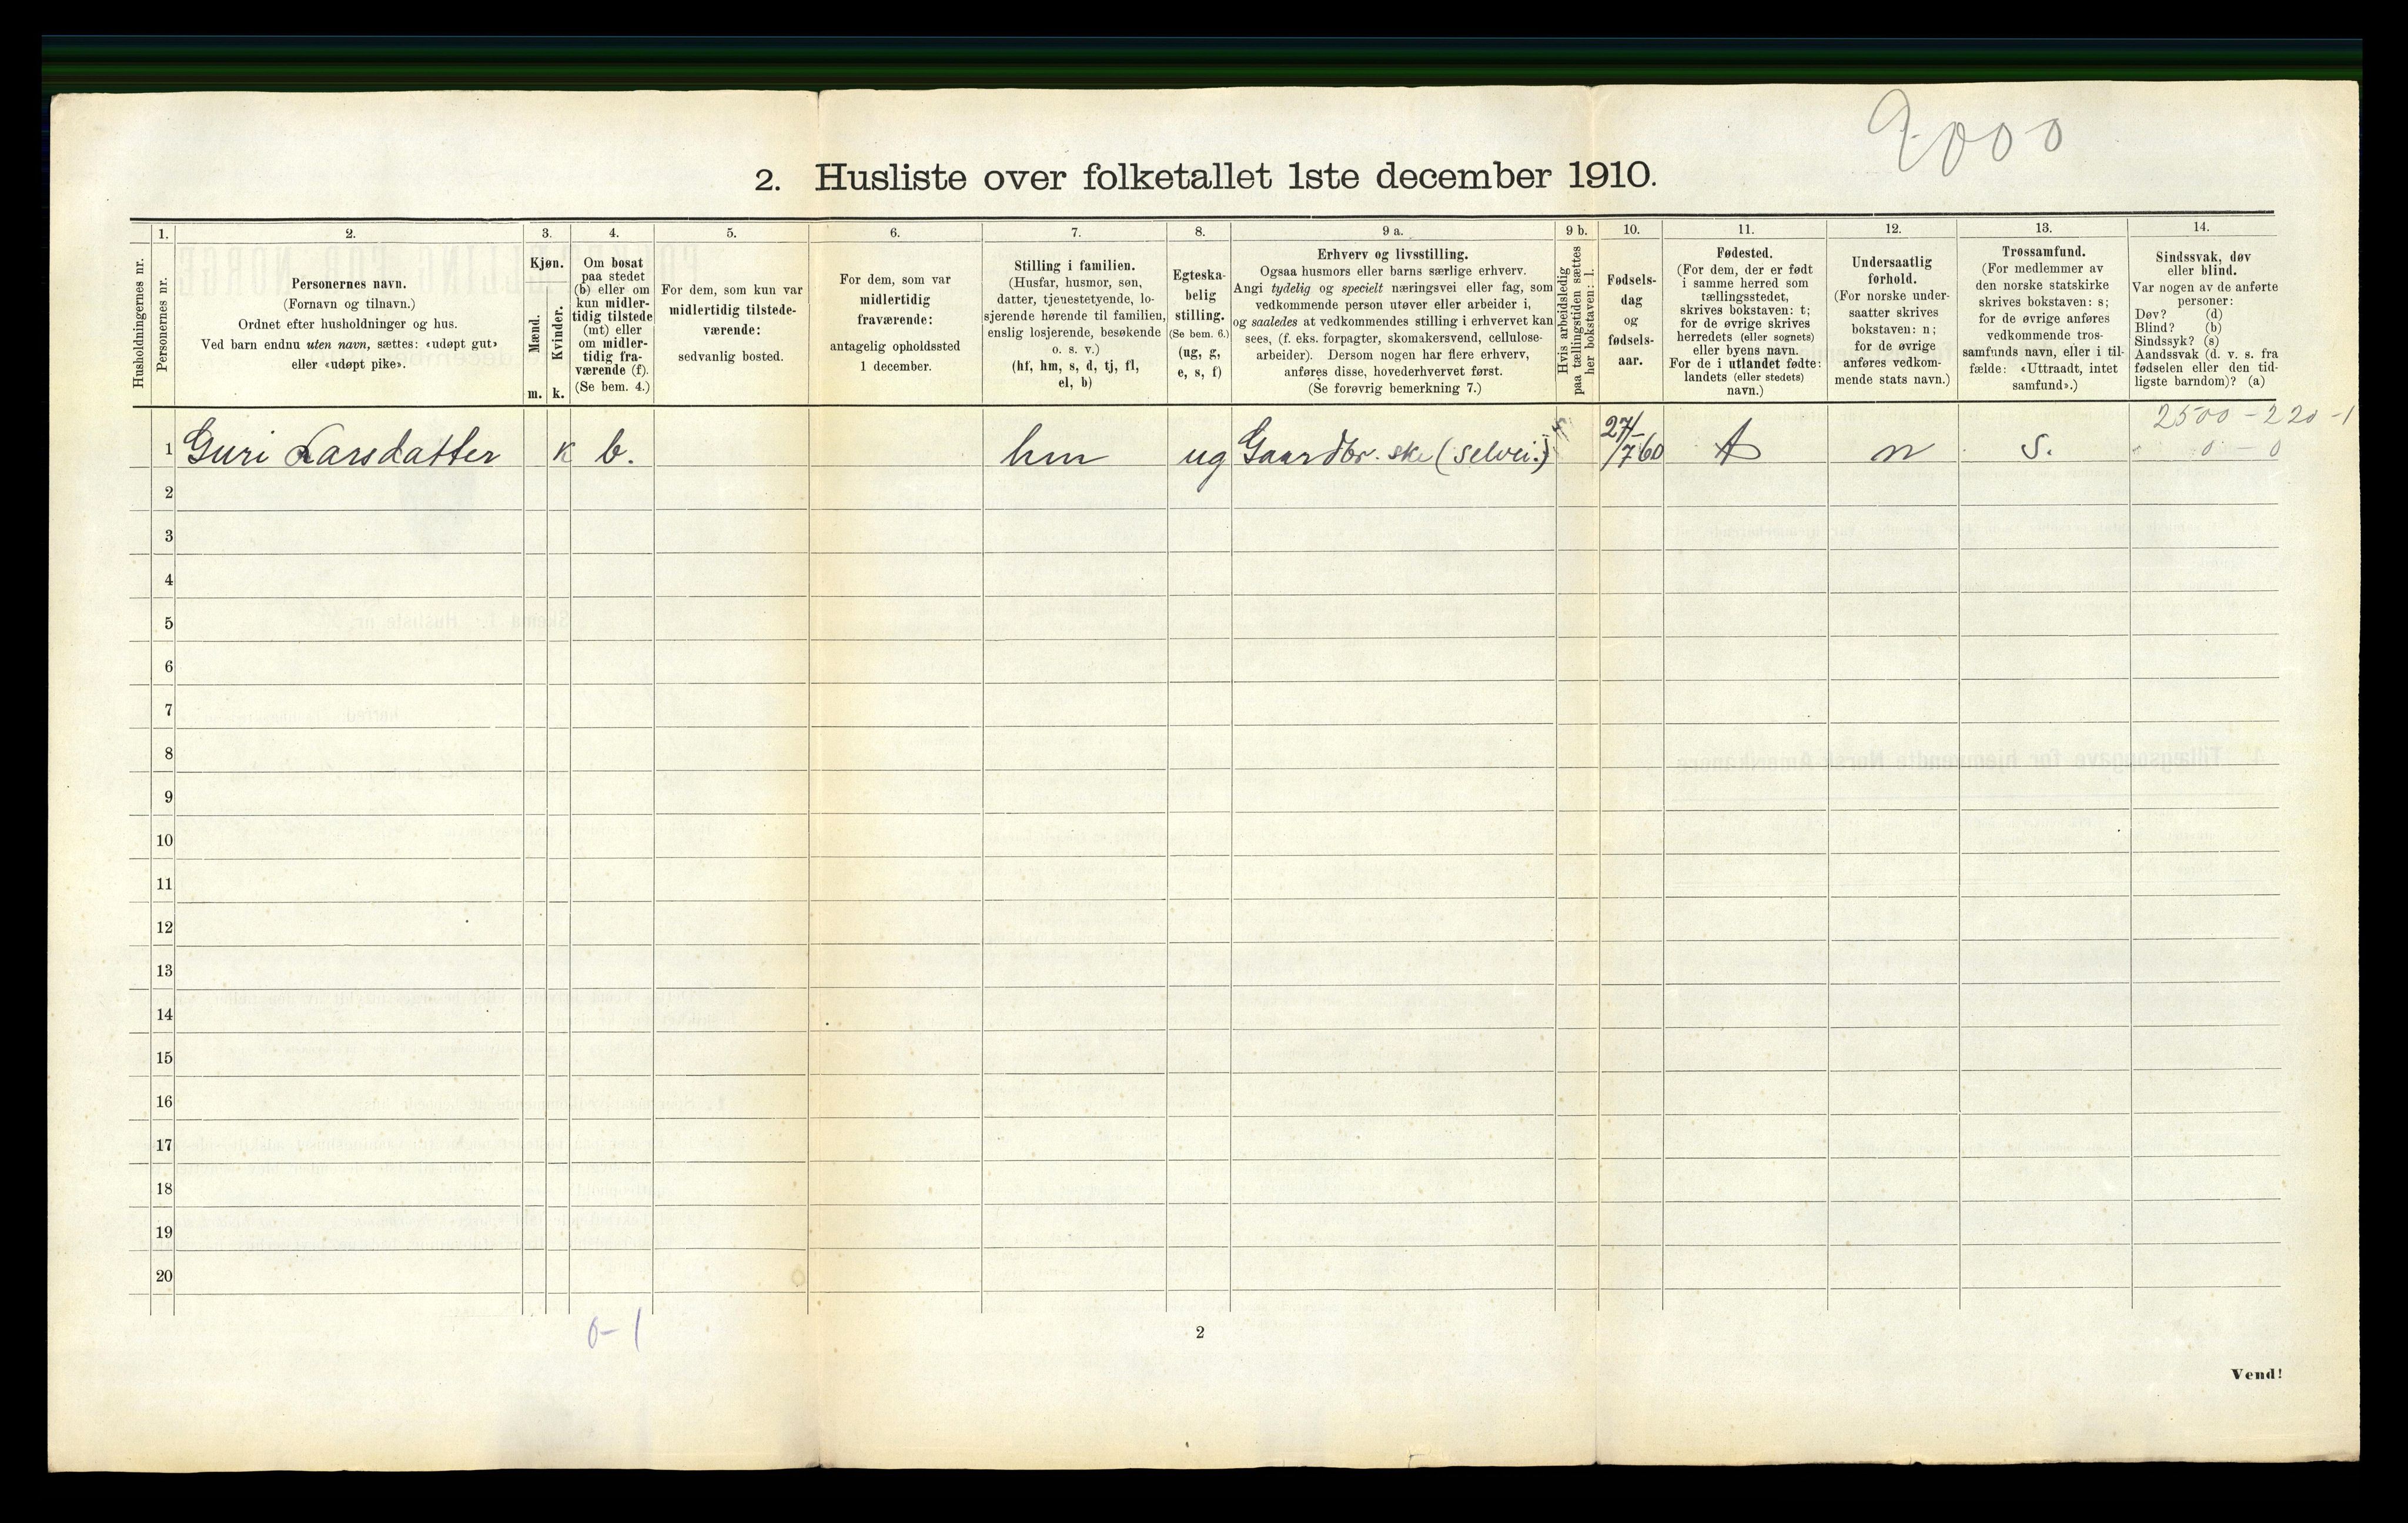 9000
2. Husliste over folketallet 1ste december 1910.
Husholdningernes nr.
1.
Personernes nr.
2.
Personernes navn.
(Fornavn og tilnavn.)
Ordnet efter husholdninger og hus.
Ved barn endnu uten navn, sættes: «udøpt gut»
eller «udøpt pike».
3.
Kjøn.
Mænd.
Kvinder.
m. k.
4.
Om bosat
paa stedet
(b) eller om
kun midler-
tidig tilstede
(mt) eller
om midler-
tidig fra-
værende (f).
(Se bem. 4.)
5.
For dem, som kun var
midlertidig tilstede-
værende:
sedvanlig bosted.
6.
For dem, som var
midlertidig
fraværende:
antagelig opholdssted
1 december.
7.
Stilling i familien.
(Husfar, husmor, søn,
datter, tjenestetyende, lo-
sjerende hørende til familien,
enslig losjerende, besøkende
o. s. v.)
(hf, hm, s, d, tj, fl,
el, b)
8.
Egteska-
belig
stilling.
(Se bem. 6.)
(ug, g,
e, s, f)
9 a.
Erhverv og livsstilling.
Ogsaa husmors eller barns særlige erhverv.
Angi tydelig og specielt næringsvei eller fag, som
vedkommende person utøver eller arbeider i,
og saaledes at vedkommendes stilling i erhvervet kan
sees, (f. eks. forpagter, skomakersvend, cellulose-
arbeider). Dersom nogen har flere erhverv,
anføres disse, hovederhvervet først.
(Se forøvrig bemerkning 7.)
9 b.
Hvis arbeidsledig
paa tællingstiden sættes
her bokstaven: l.
10.
Fødsels-
dag
og
fødsels-
aar.
11.
Fødested.
(For dem, der er født
i samme herred som
tællingsstedet,
skrives bokstaven: t;
for de øvrige skrives
herredets (eller sognets)
eller byens navn.
For de i utlandet fødte:
landets (eller stedets)
navn.)
12.
Undersaatlig
forhold.
(For norske under-
saatter skrives
bokstaven: n;
for de øvrige
anføres vedkom-
mende stats navn.)
13.
Trossamfund.
(For medlemmer av
den norske statskirke
skrives bokstaven: s;
for de øvrige anføres
vedkommende tros-
samfunds navn, eller i til-
fælde: «Uttraadt, intet
samfund».)
14.
Sindssvak, døv
eller blind.
Var nogen av de anførte
personer:
Døv? (d)
Blind? (b)
Sindssyk? (s)
Aandssvak (d. v. s. fra
fødselen eller den tid-
ligste barndom)? (a)
2500 - 220 - 1
1 Guri Larsdatter k b. hm ug Gaardbr.ske (selvei.) 27/7 60 t n s. 0 - 0
2
3
4
5
6
7
8
9
10
11
12
13
14
15
16
17
18
19
20
0-1
2
Vend!